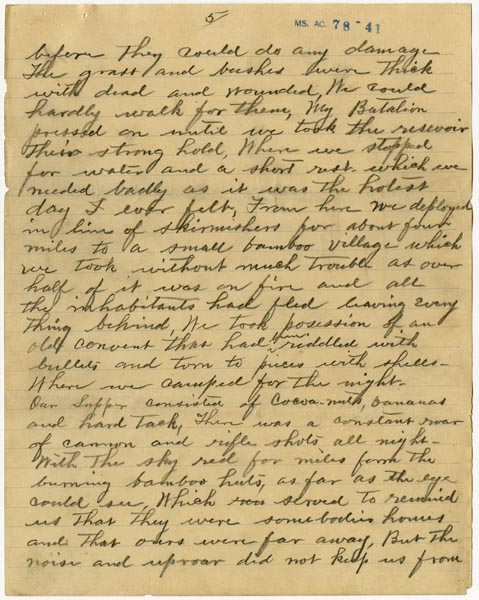 5
MS. AC. 78-41
before they could do any damage
The grass and bushes were thick
with dead and wounded, We could
hardly walk for them, My Batalion
pressed on until we took the resevoir
their strong hold, Where we stopped
for water and a short rest. which we
needed badly as it was the hotest
day I ever felt, From here we deployed
in line of skirmishers for about four
miles to a small bamboo village which
we took without much trouble as over
half of it was on fire and all
the inhabitants had fled leaving every
thing behind, We took posession of an
old convent that had been riddled with
bullets and torn to pieces with shells-
Where we camped for the night-
Our Supper consisted of Cocoa-milk, bananas
and hard tack, There was a constant roar
of cannon and rifle shots all night-
With the sky red for miles form the
burning bamboo huts, as far as the eye
could see, Which served to remind
us that they were somebodies homes
and that ours were far away, But the
noise and uproar did not keep us from